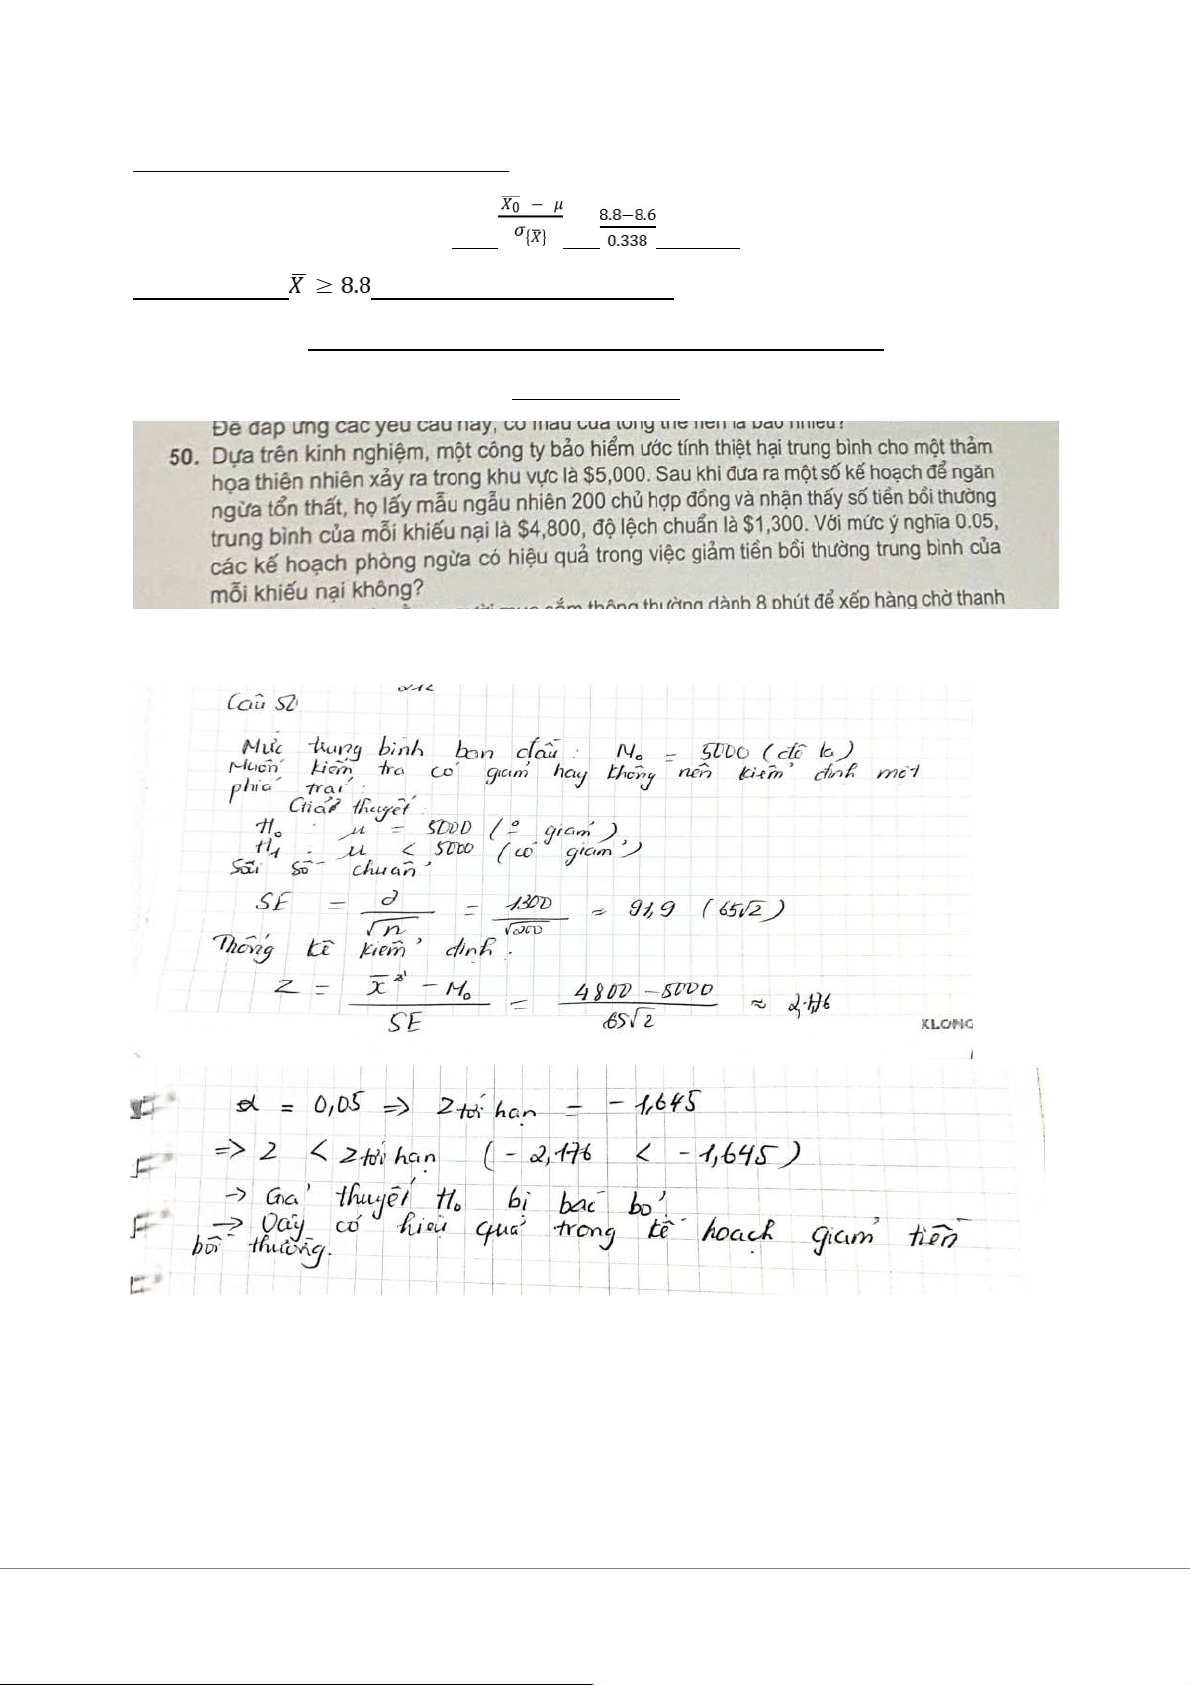 X̄0 − μ
σ{X̄}
8.8−8.6
0.338
X̄ ≥ 8.8
Để đáp ứng các yêu cầu này, cỡ mẫu của tổng thể nên là bao nhiêu?
50. Dựa trên kinh nghiệm, một công ty bảo hiểm ước tính thiệt hại trung bình cho một thảm
họa thiên nhiên xảy ra trong khu vực là $5,000. Sau khi đưa ra một số kế hoạch để ngăn
ngừa tổn thất, họ lấy mẫu ngẫu nhiên 200 chủ hợp đồng và nhận thấy số tiền bồi thường
trung bình của mỗi khiếu nại là $4,800, độ lệch chuẩn là $1,300. Với mức ý nghĩa 0.05,
các kế hoạch phòng ngừa có hiệu quả trong việc giảm tiền bồi thường trung bình của
mỗi khiếu nại không?
mua sắm thông thường dành 8 phút để xếp hàng chờ thanh
Câu 50
Mức trung bình ban đầu : M₀ = 5000 (đô la)
Muốn kiểm tra có giảm hay không nên kiểm định một
phía trái :
Giả thuyết :
H₀ : μ = 5000 (o giảm)
H₁ : μ < 5000 (có giảm)
Sai số chuẩn
SE = ∂/√n = 1300/√200 ≈ 91,9 (65√2)
Thống kê kiểm định :
Z = (x̄ − M₀)/SE = (4800 − 5000)/65√2 ≈ 2,176
KLONG
α = 0,05 => Z tới hạn = − 1,645
=> Z < Z tới hạn (− 2,176 < − 1,645)
→ Giả thuyết H₀ bị bác bỏ
→ Vậy có hiệu quả trong kế hoạch giảm tiền
bồi thường.